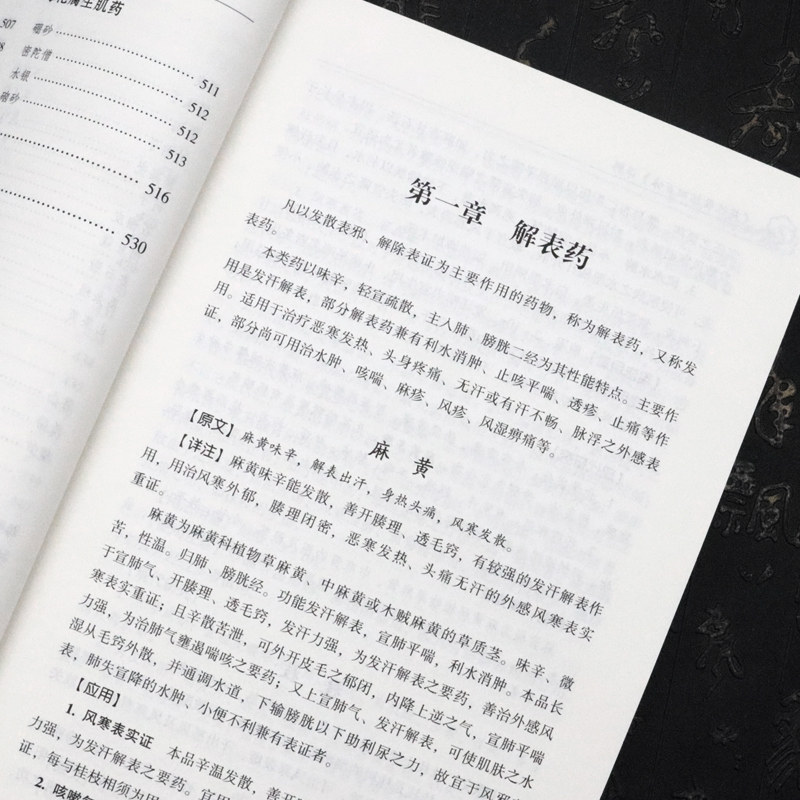 化腐生肌药
507 硼砂 511
密陀僧 512
水银 512
硇砂 513
516
530
第一章 解表药
凡以发散表邪、解除表证为主要作用的药物，称为解表药，又称发
表药。
本类药以味辛，轻宣疏散，主入肺、膀胱二经为其性能特点。主要作
用是发汗解表，部分解表药兼有利水消肿、止咳平喘、透疹、止痛等作
用。适用于治疗恶寒发热、头身疼痛、无汗或有汗不畅、脉浮之外感表
证，部分尚可用治水肿、咳喘、麻疹、风疹、风湿痹痛等。
麻 黄
【原文】麻黄味辛，解表出汗，身热头痛，风寒发散。
【详注】麻黄味辛能发散，善开腠理、透毛窍，有较强的发汗解表作
用，用治风寒外郁，腠理闭密，恶寒发热、头痛无汗的外感风寒表实
重证。
麻黄为麻黄科植物草麻黄、中麻黄或木贼麻黄的草质茎。味辛、微
苦，性温。归肺、膀胱经。功能发汗解表，宣肺平喘，利水消肿。本品长
于宣肺气、开腠理、透毛窍，发汗力强，为发汗解表之要药，善治外感风
寒表实重证；且辛散苦泄，可外开皮毛之郁闭，内降上逆之气，宣肺平喘
力强，为治肺气壅遏喘咳之要药；又上宣肺气、发汗解表，可使肌肤之水
湿从毛窍外散，并通调水道，下输膀胱以下助利尿之力，故宜于风邪
表，肺失宣降的水肿、小便不利兼有表证者。
【应用】
1. 风寒表实证 本品辛温发散，善开
力强，为发汗解表之要药。宜用
证，每与桂枝相须为用
2. 咳嗽